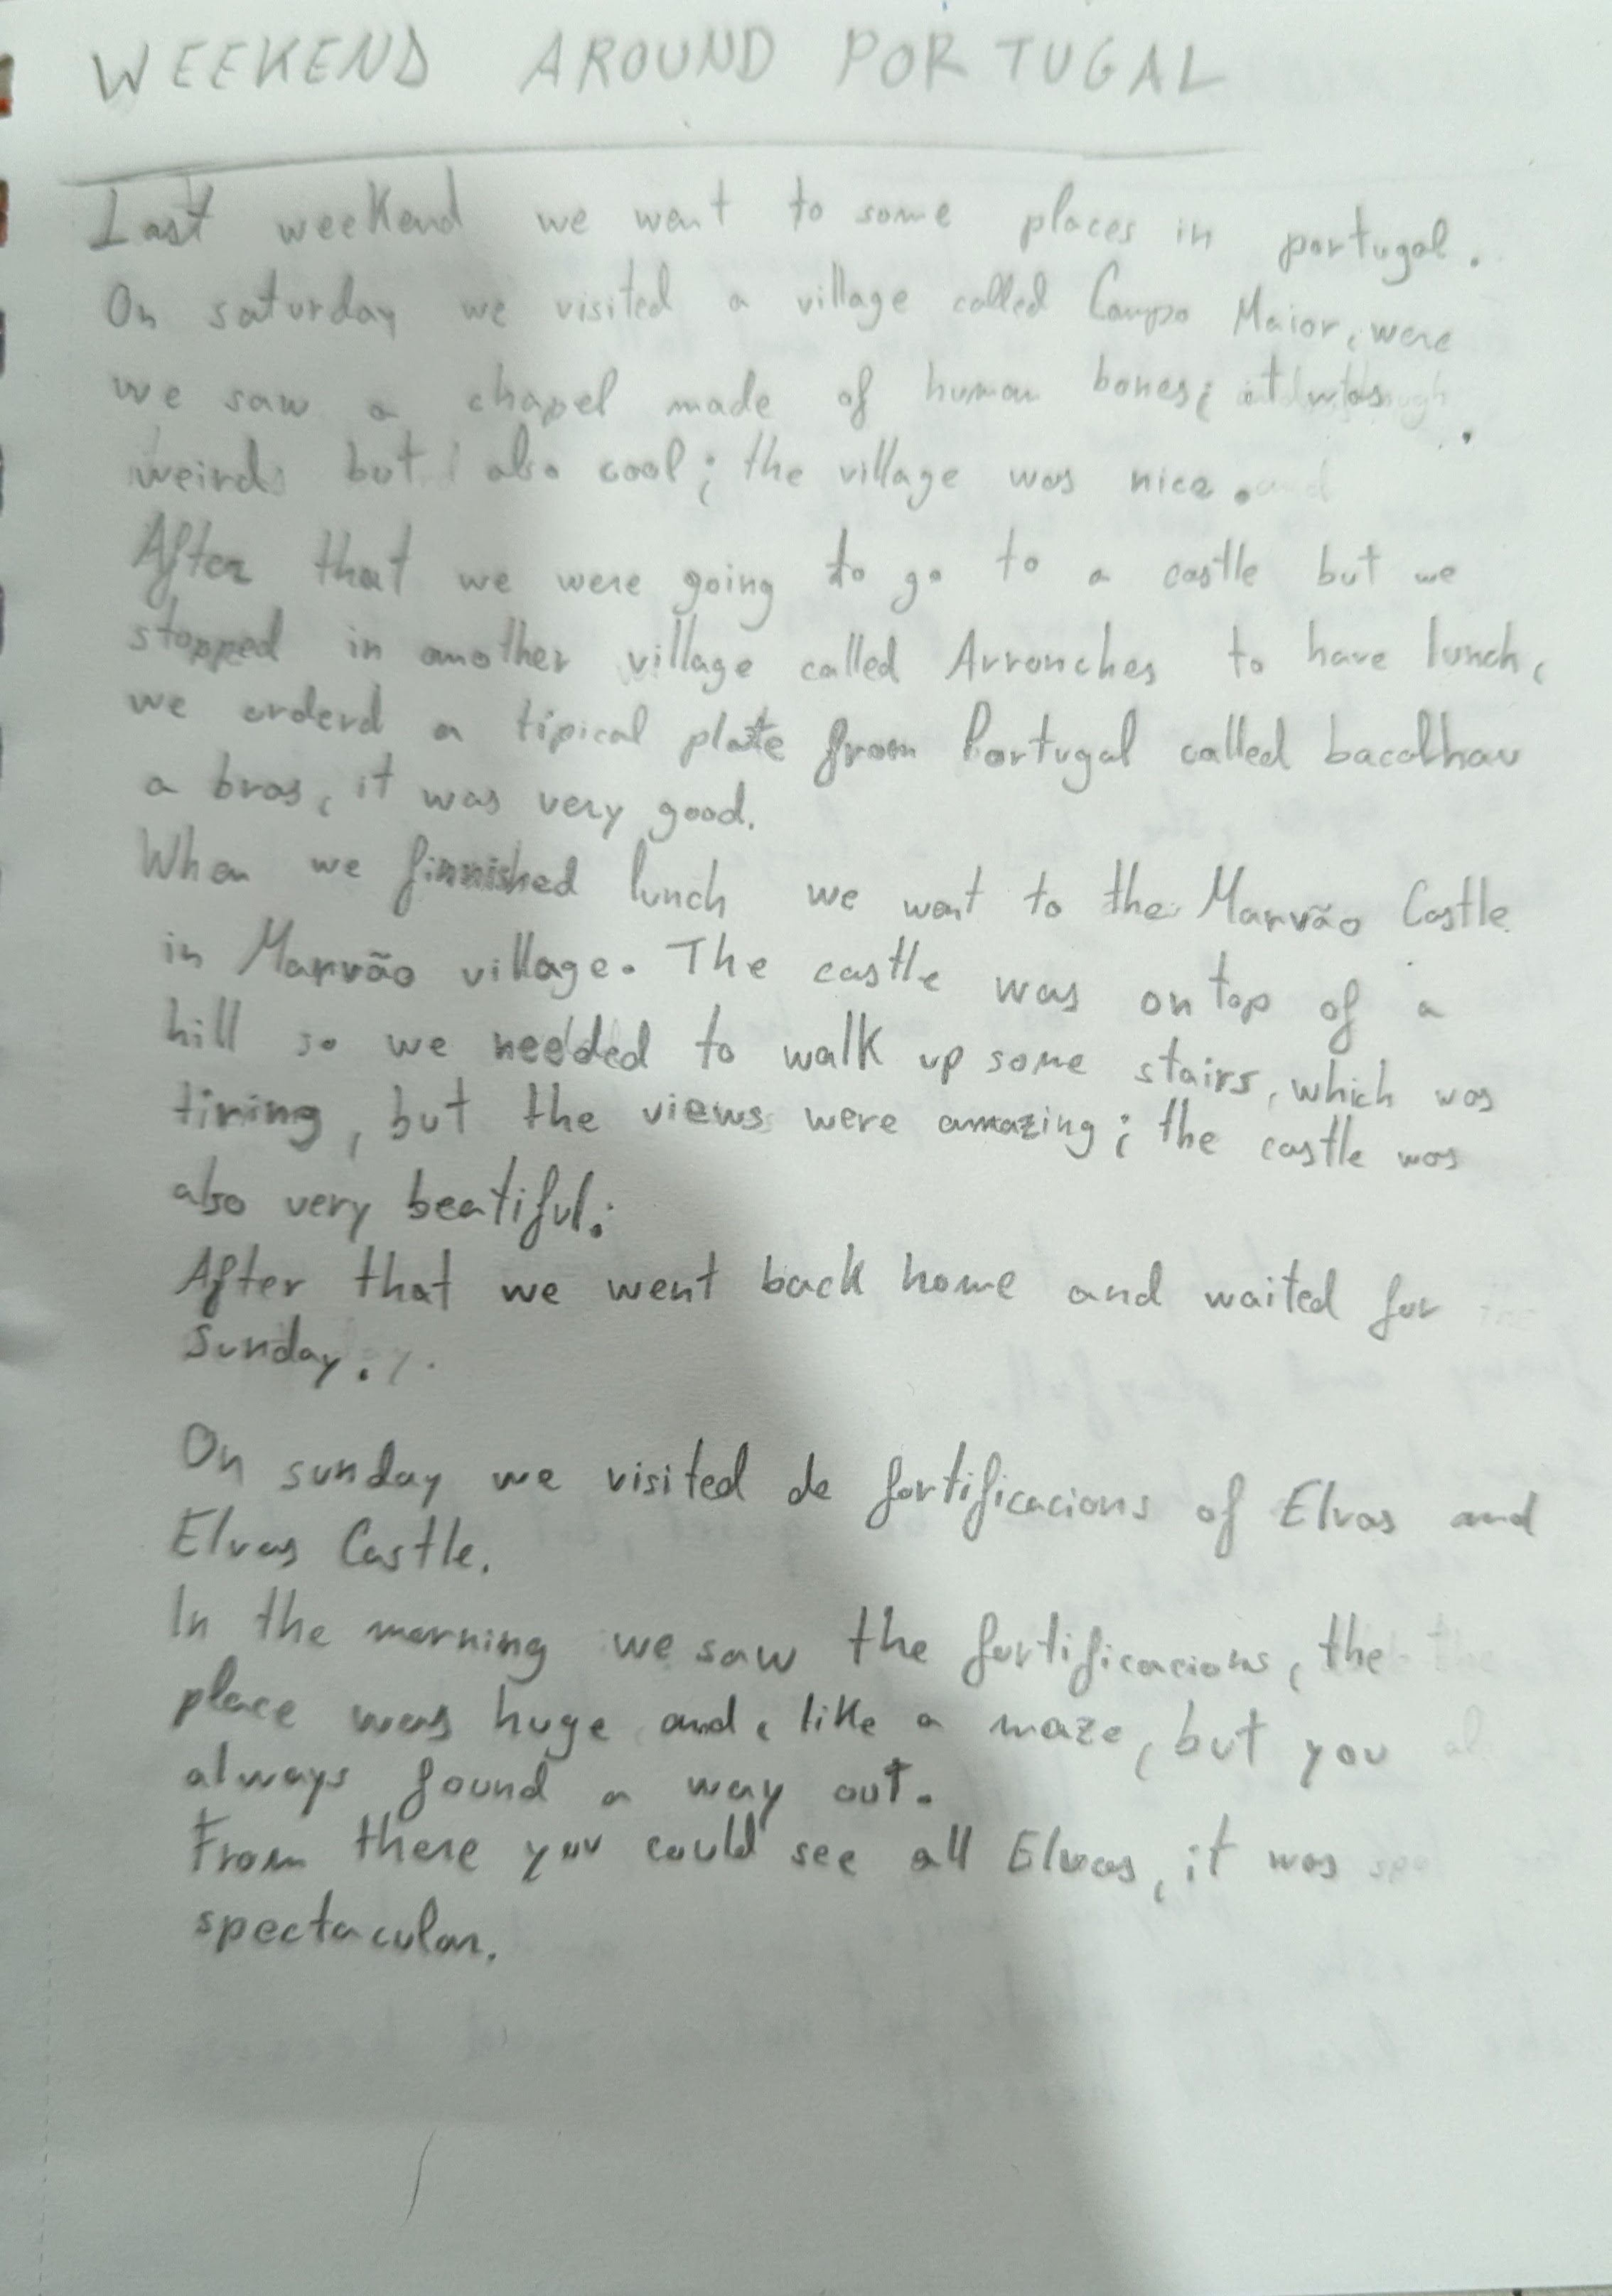 WEEKEND AROUND PORTUGAL
Last weekend we went to some places in portugal.
On saturday we visited a village called Campo Maior, were
we saw a chapel made of human bones; it was
weird but also cool; the village was nice.
After that we were going to go to a castle but we
stopped in another village called Arronches to have lunch,
we orderd a tipical plate from Portugal called bacalhau
a bras, it was very good.
When we finnished lunch we went to the Marvão Castle
in Marvão village. The castle was on top of a
hill so we needed to walk up some stairs, which was
tiring, but the views were amazing; the castle was
also very beatiful.
After that we went back home and waited for
sunday.
On sunday we visited de fortificacions of Elvas and
Elvas Castle.
In the morning we saw the fortificacions, the
place was huge and, like a maze, but you
always found a way out.
From there you could see all Elvas, it was
spectacular.